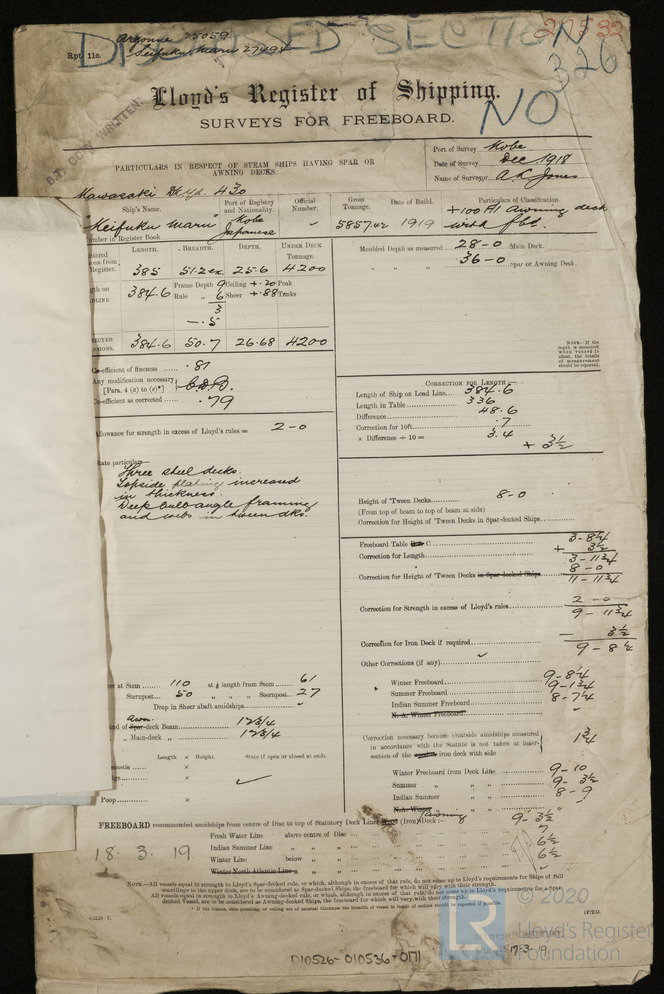 Argonne 35059
Rpt. 11c. Seifuku Maru 27494
DISCUSSED SECTION
326
NO
Lloyd's Register of Shipping.
SURVEYS FOR FREEBOARD.
PARTICULARS IN RESPECT OF STEAM SHIPS HAVING SPAR OR
AWNING DECKS.
Port of Survey Kobe
Date of Survey Dec 1918
Name of Surveyor A. L. Jones
Kawasaki Dkyd. 430
Ship's Name. Port of Registry and Nationality. Official Number. Gross Tonnage. Date of Build. Particulars of Classification.
"Keifuku Maru" Kobe Japanese 5857.42 1919 +100A1 Awning deck with fbd.
Number in Register Book
LENGTH. BREADTH. DEPTH. UNDER DECK Tonnage.
Register. 385 51.2 25.6 4200
384.6 Frame Depth 9 Ceiling +.20 Peak
Rule " 6 Sheer +.88 Tanks
3
—.5
384.6 50.7 26.68 4200
Co-efficient of fineness .81
Any modification necessary
[Para. 4 (a) to (e)*] C.D.B.
Co-efficient as corrected .79
Allowance for strength in excess of Lloyd's rules = 2-0
State particulars
Three steel decks.
Topside plating increased
in thickness.
Deep bulb angle framing
and webs in tween dks.
at Stem 110 at ⅛ length from Stem 61
Sternpost 50 " " " Sternpost 27
Drop in Sheer abaft amidships
Awn. Spar-deck Beam 12 3/4
" Main-deck " 12 3/4
Length × Height. State if open or closed at ends.
Poop ×
Moulded Depth as measured 28-0 Main Deck.
" " " 36-0 Spar or Awning Deck.
NOTE.—If the depth is measured when vessel is afloat, the details of measurement should be reported.
CORRECTION FOR LENGTH—
Length of Ship on Load Line 384.6
Length in Table 336
Difference 48.6
Correction for 10ft. .7
× Difference ÷ 10 = 3.4
+ 3½
Height of 'Tween Decks 8-0
(From top of beam to top of beam at side)
Correction for Height of 'Tween Decks in Spar-decked Ships
Freeboard Table C 3-8¼
Correction for Length + 3½
3-11¾
Correction for Height of 'Tween Decks in Spar-decked Ships 8-0
11-11¾
Correction for Strength in excess of Lloyd's rules 2-0
9-11¾
Correction for Iron Deck if required — 3½
9-8¼
Other Corrections (if any)
Winter Freeboard 9-8¼
Summer Freeboard 9-1¾
Indian Summer Freeboard 8-7¼
N. A. Winter Freeboard
Correction necessary because clearside amidships measured
in accordance with the Statute is not taken at inter-
section of the iron deck with side 1¾
Winter Freeboard from Deck Line 9-10
Summer " " " 9-3½
Indian Summer " " 8-9
N.A. Winter " "
FREEBOARD recommended amidships from centre of Disc to top of Statutory Deck Line, Awning (Iron) Deck:— 9-3½
18.3.19
Fresh Water Line above centre of Disc 7
Indian Summer Line " " 6½
Winter Line below " " 6½
Winter North Atlantic Line " "
NOTE.—All vessels equal in strength to Lloyd's Spar-decked rule, or which, although in excess of that rule, do not come up to Lloyd's requirements for Ships of full
scantlings to the upper deck, are to be considered as Spar-decked Ships, the freeboard for which will vary with their strength.
All vessels equal in strength to Lloyd's Awning-decked rule, or which, although in excess of that rule, do not come up to Lloyd's requirements for a Spar-
decked Vessel, are to be considered as Awning-decked Ships, the freeboard for which will vary with their strength.
P.T.O.
17-3-19
D10526-010536-0171
LR
© 2020
Lloyd's Register
Foundation